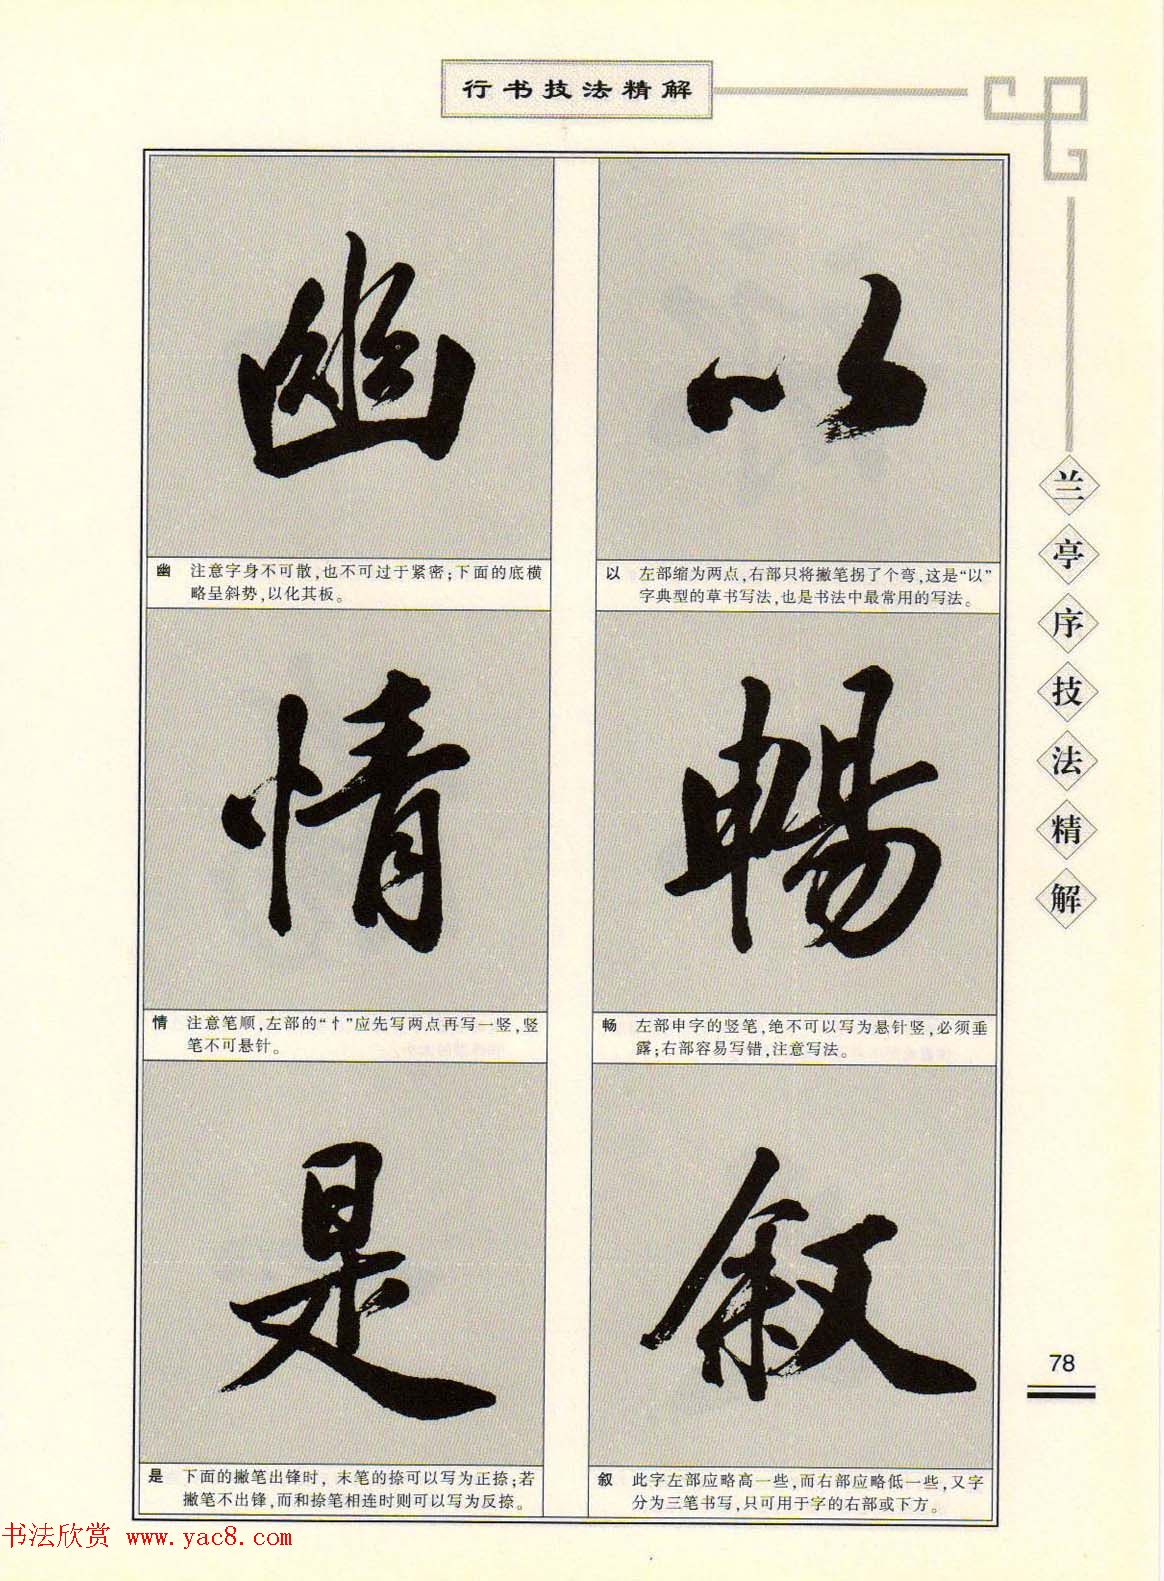 行书技法精解
以
以 左部缩为两点，右部只将撇笔拐了个弯，这是“以”
字典型的草书写法，也是书法中最常用的写法。
暢
畅 左部申字的竖笔，绝不可以写为悬针竖，必须垂
露；右部容易写错，注意写法。
叙
叙 此字左部应略高一些，而右部应略低一些，又字
分为三笔书写，只可用于字的右部或下方。
幽
幽 注意字身不可散，也不可过于紧密；下面的底横
略呈斜势，以化其板。
情
情 注意笔顺，左部的“忄”应先写两点再写一竖，竖
笔不可悬针。
是
是 下面的撇笔出锋时，末笔的捺可以写为正捺；若
撇笔不出锋，而和捺笔相连时则可以写为反捺。
兰亭序技法精解
78
书法欣赏 www.yac8.com